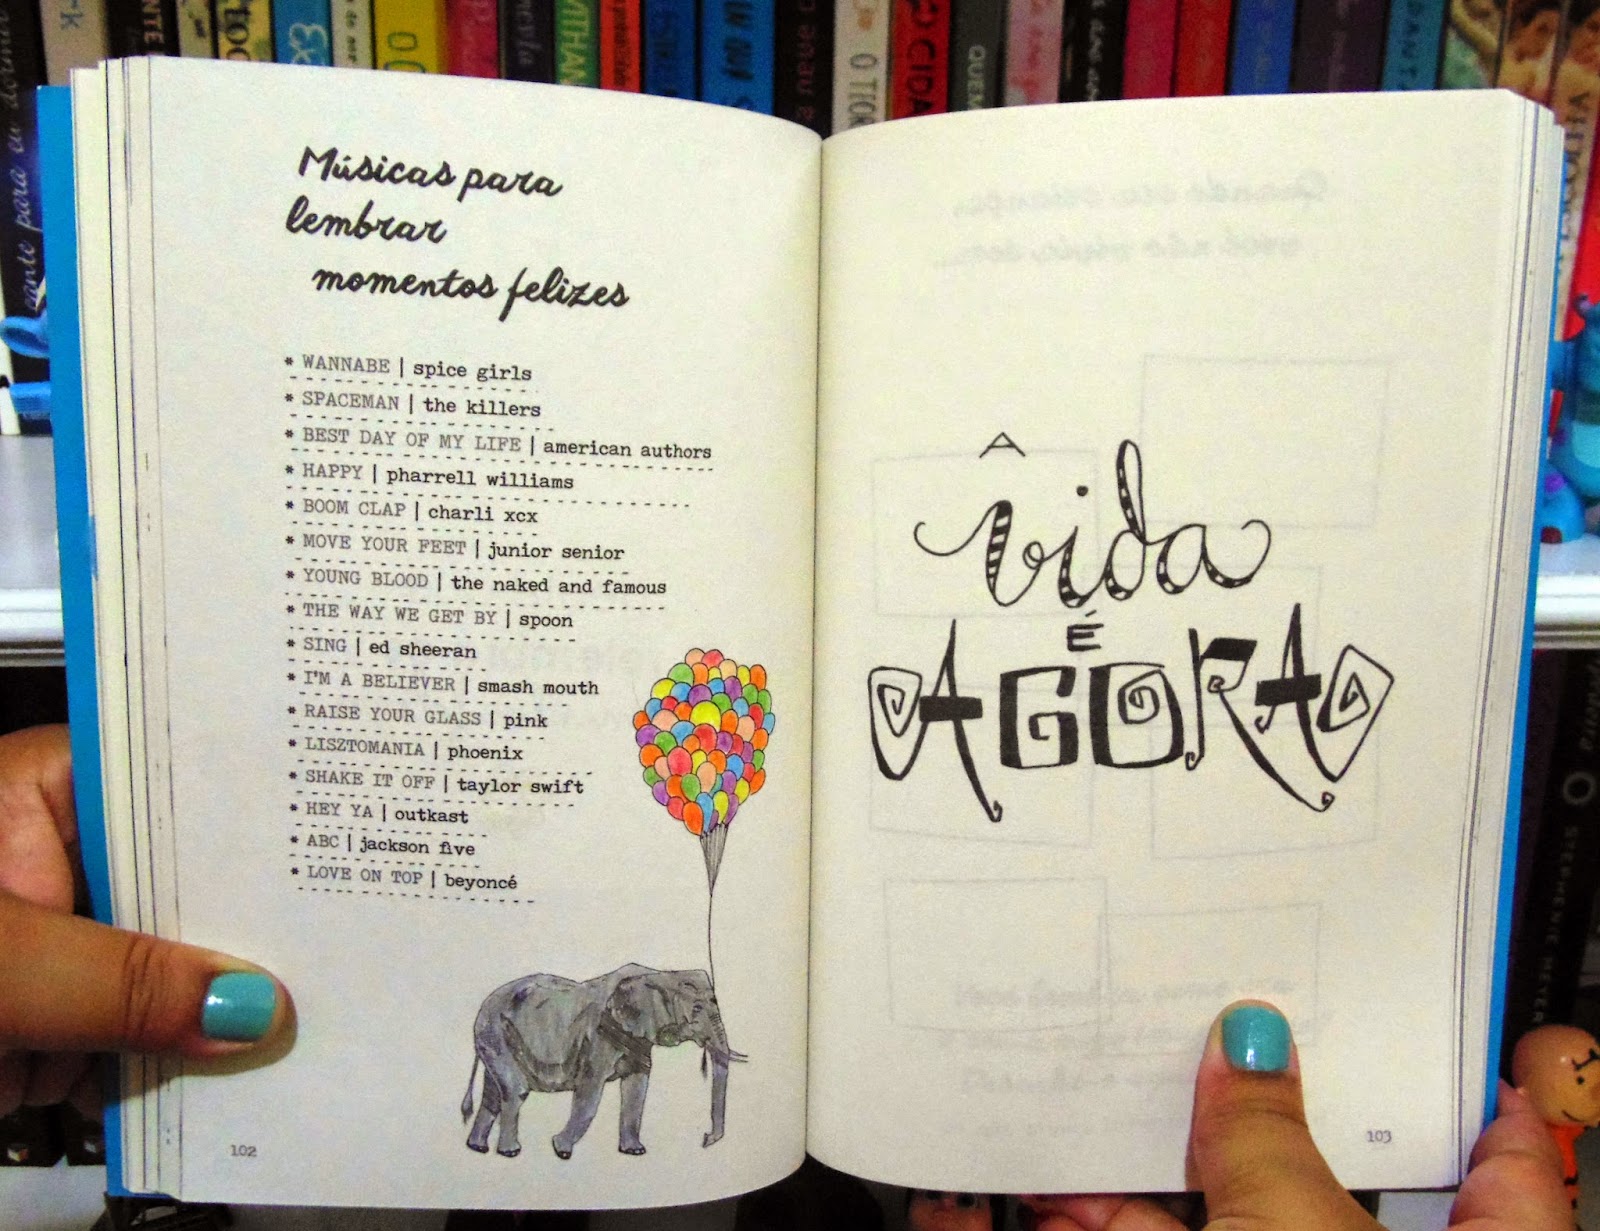 Músicas para
lembrar
momentos felizes
* WANNABE | spice girls
* SPACEMAN | the killers
* BEST DAY OF MY LIFE | american authors
* HAPPY | pharrell williams
* BOOM CLAP | charli xcx
* MOVE YOUR FEET | junior senior
* YOUNG BLOOD | the naked and famous
* THE WAY WE GET BY | spoon
* SING | ed sheeran
* I'M A BELIEVER | smash mouth
* RAISE YOUR GLASS | pink
* LISZTOMANIA | phoenix
* SHAKE IT OFF | taylor swift
* HEY YA | outkast
* ABC | jackson five
* LOVE ON TOP | beyoncé
102
A
vida
É
AGORA
103
cante para eu dormir
O TIGR
CIDA
QUEM
STEPHENIE MEYER